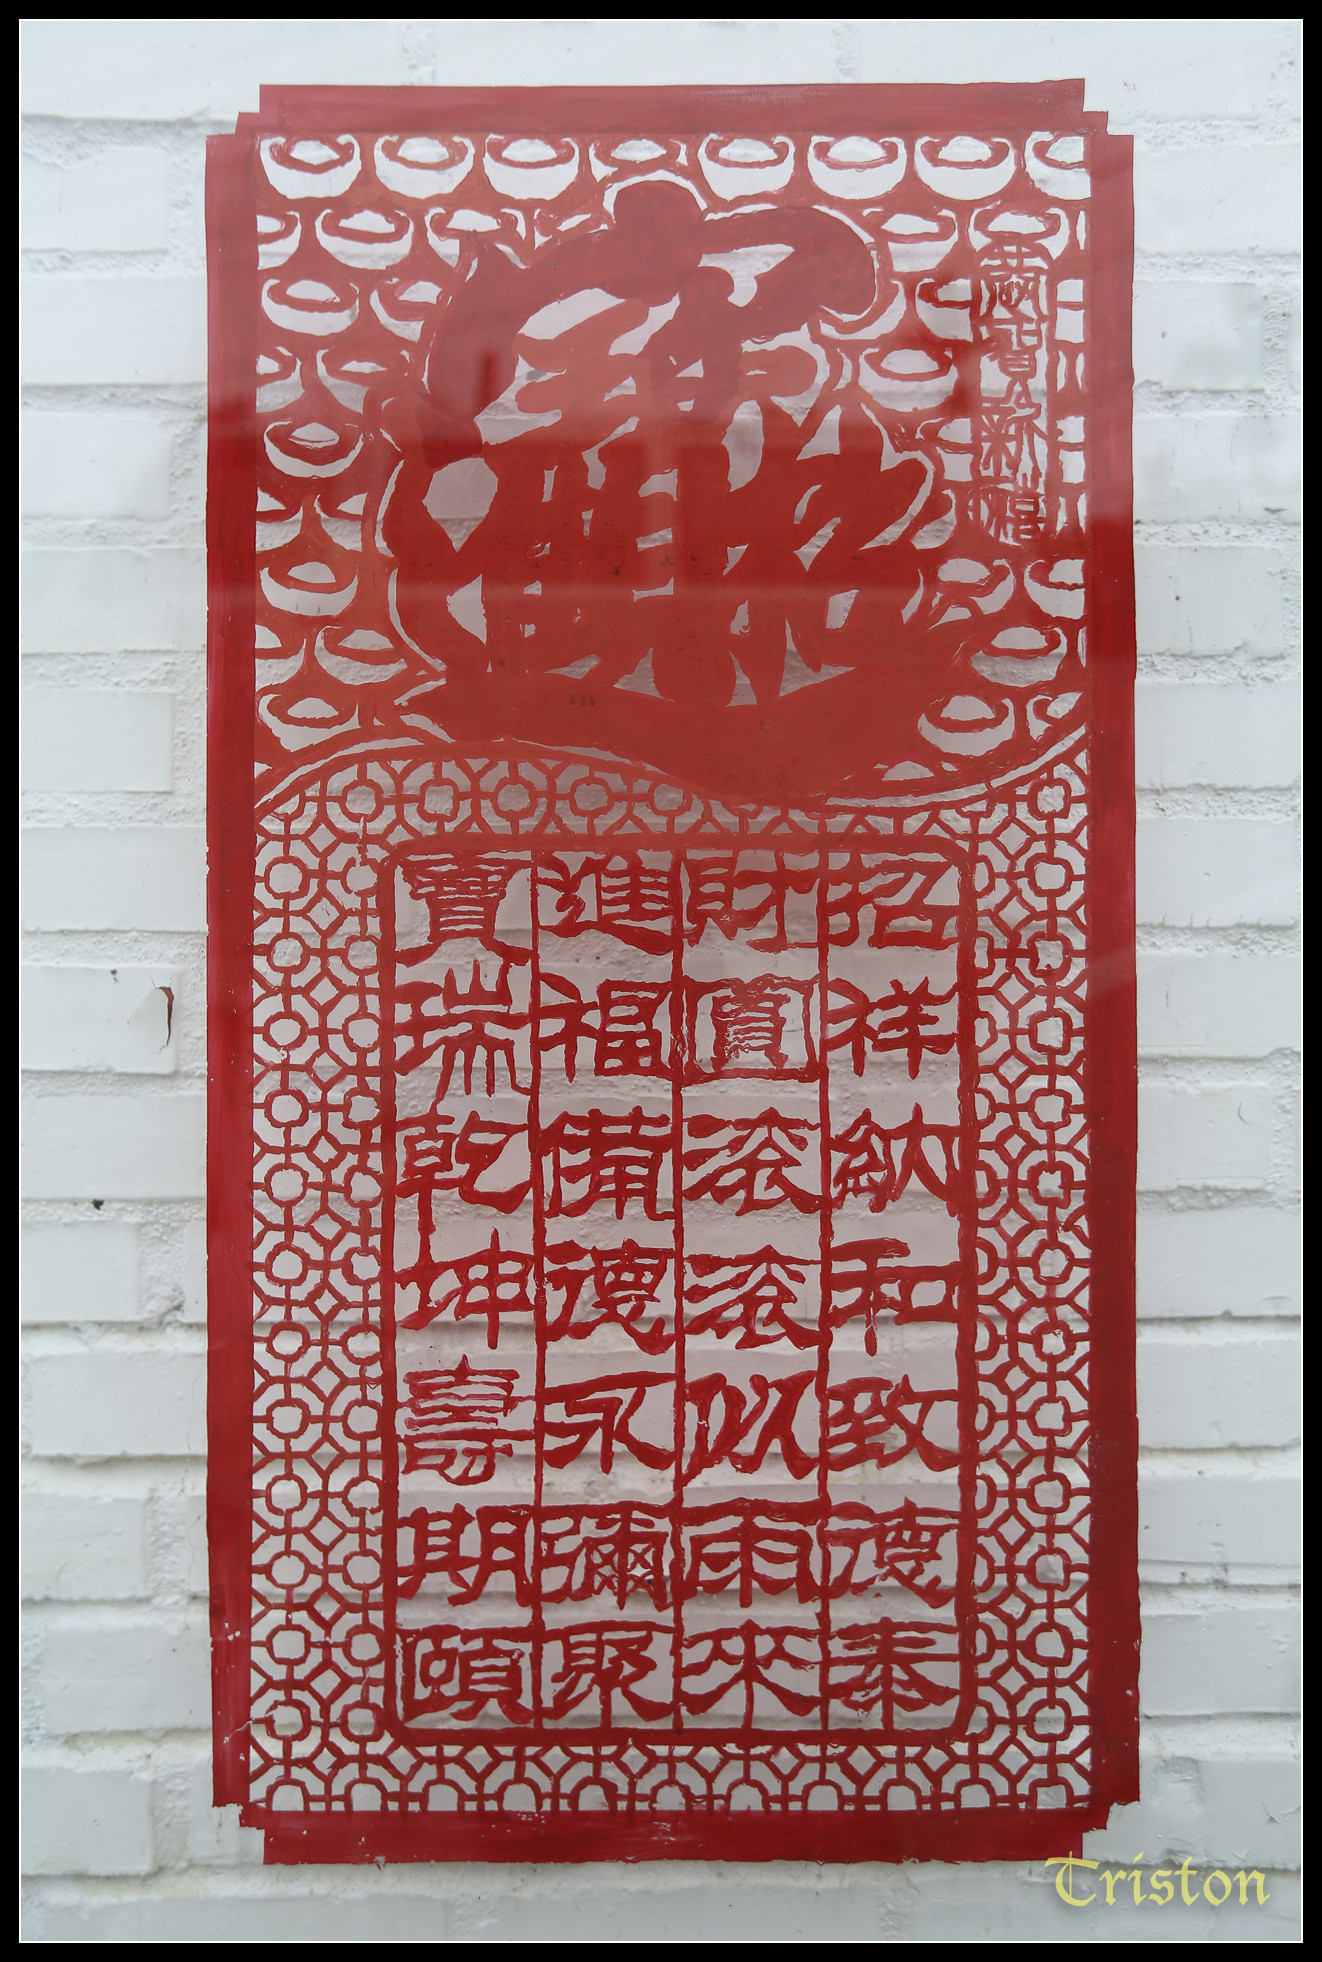 招財進寶
新禧
招祥納和致德泰
財圓滾滾以雨來
進福備德永彌聚
寶瑞乾坤壽期頤
Triston